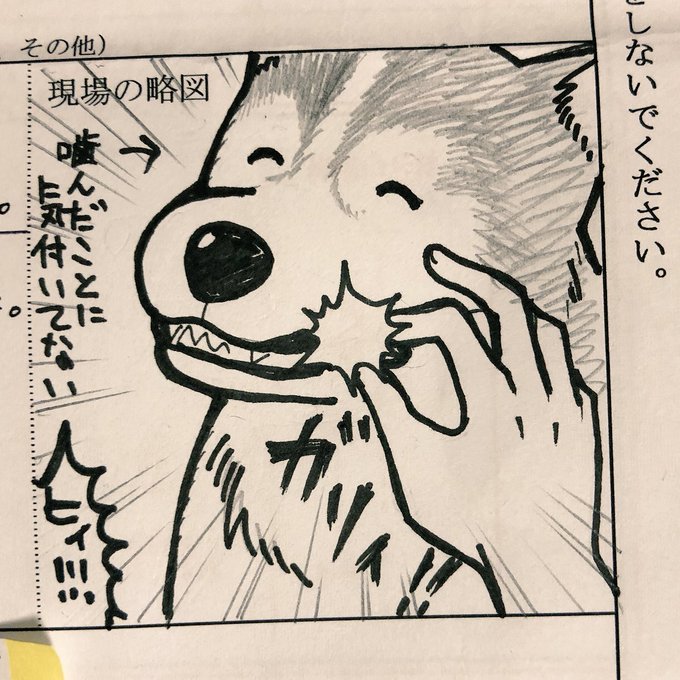 その他）
をしないでください。
現場の略図
噛んだことに
気付いてない
→
ヒィ!!!
ガブッ